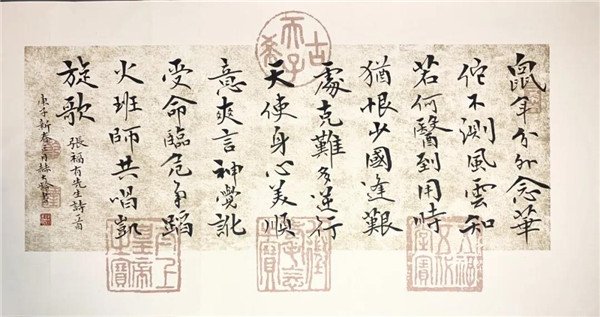 古希天子
鼠年分外念華
佗不測風雲知
若何醫到用時
猶恨少國逢艱
處克難多逆行
天使身心美順
意爽言神覺訛
受命臨危爭蹈
火班師共唱凱
旋歌
張福有先生詩首
庚子新春
太上皇帝之寶